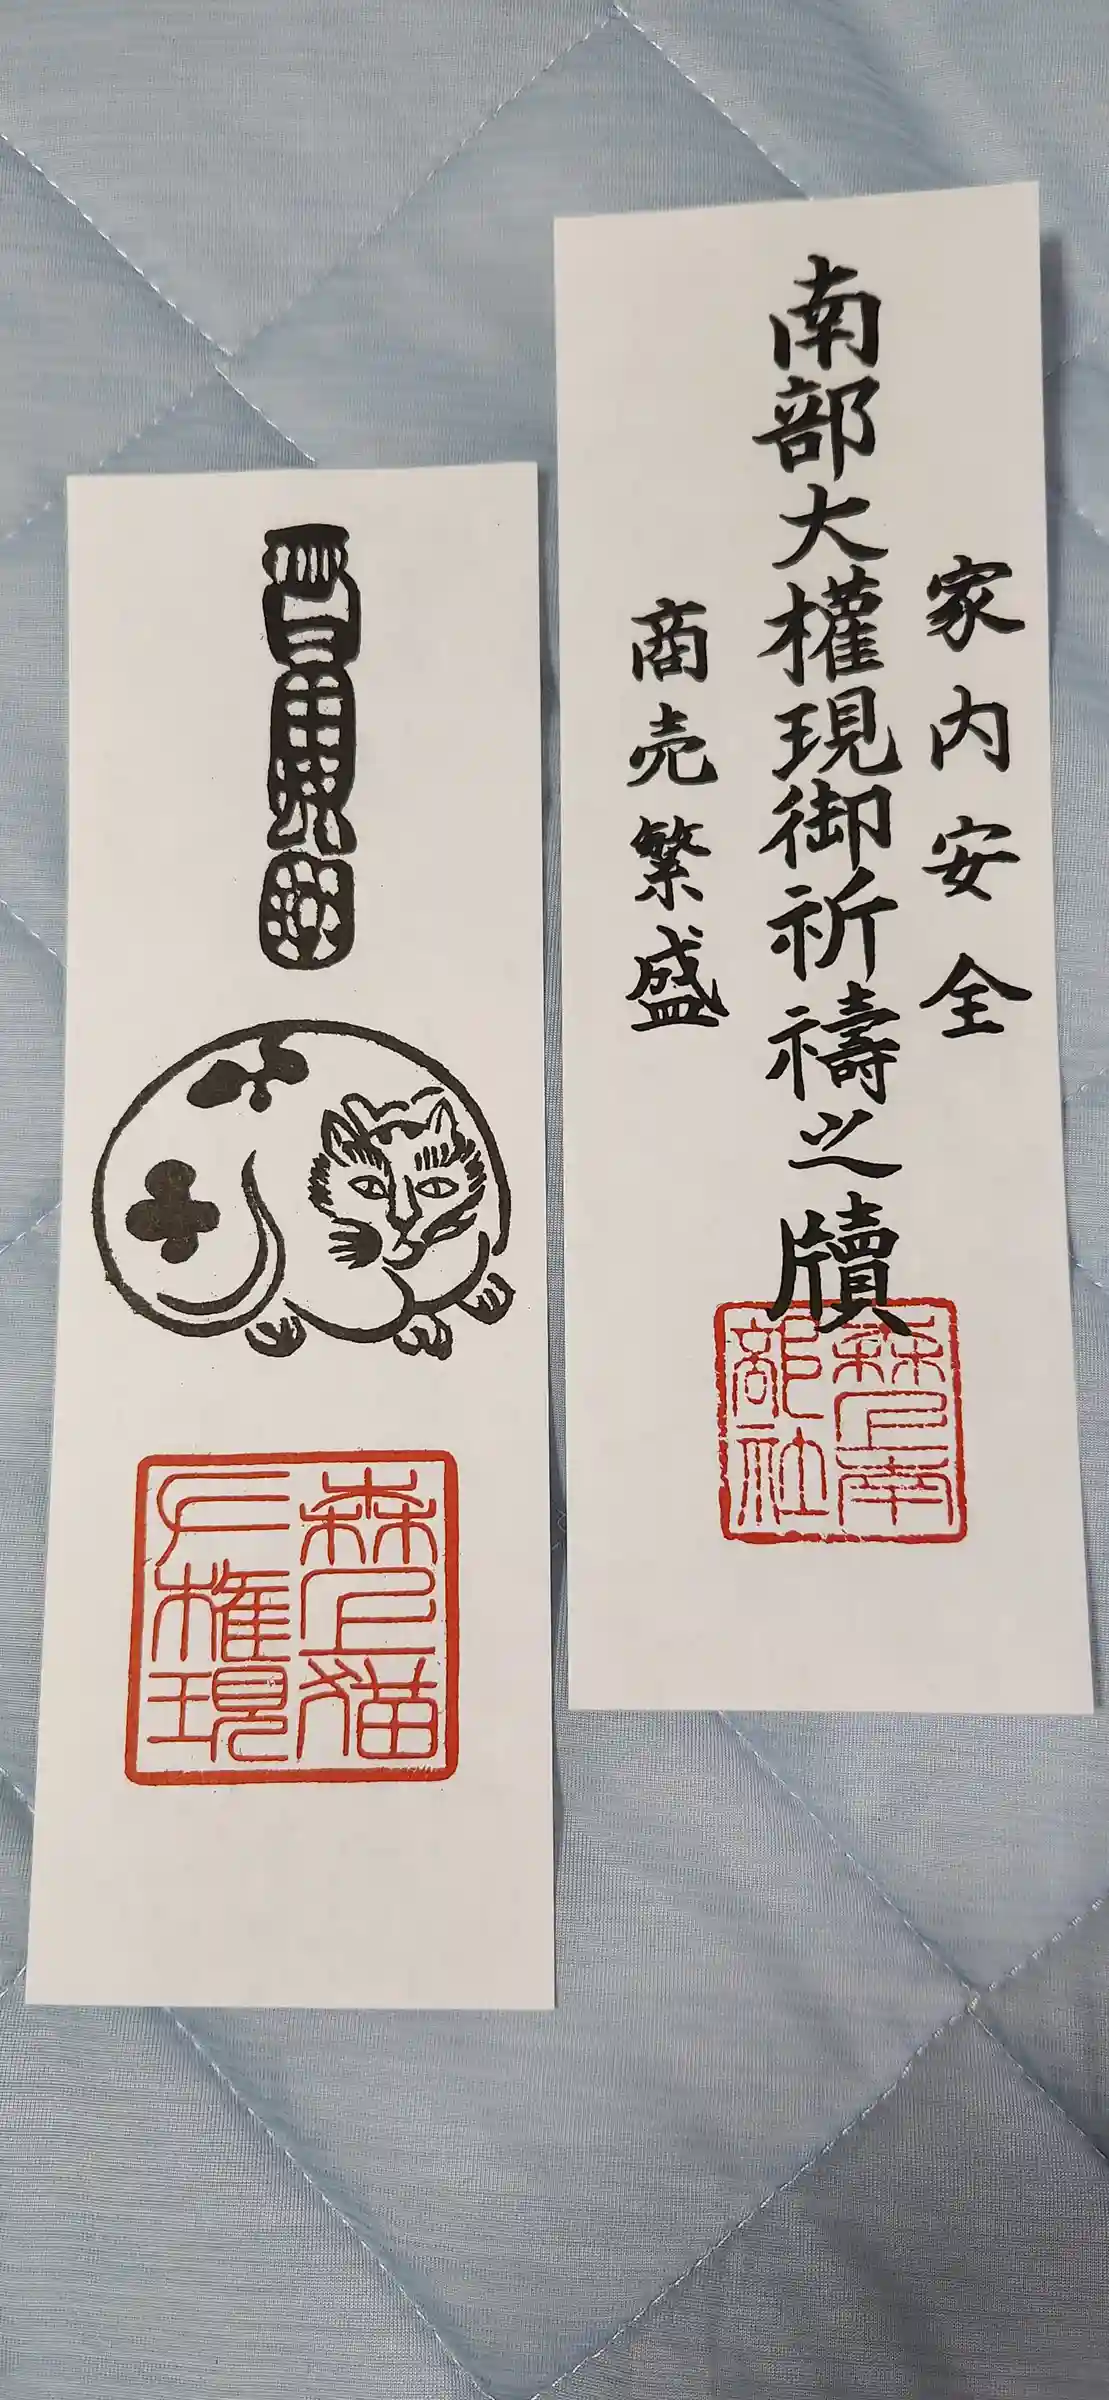 家内安全
南部大權現御祈禱之牘
商売繁盛
森上南
部社
森上猫
大権現